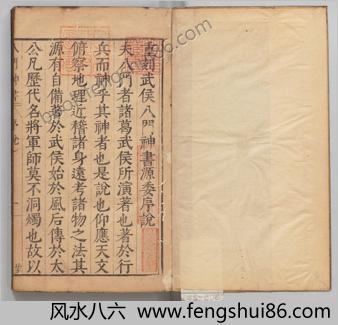 重刻武侯八門神書源委序說
夫八門者諸葛武侯所演著也著於行
兵而神乎其神者也是說也仰應天文
俯察地理近稽諸身遠考諸物之法其
源有自備著於武侯始於風后傳於太
公凡歷代名將軍師莫不洞燭也故以
八門神書
风水八六 www.fengshui86.com